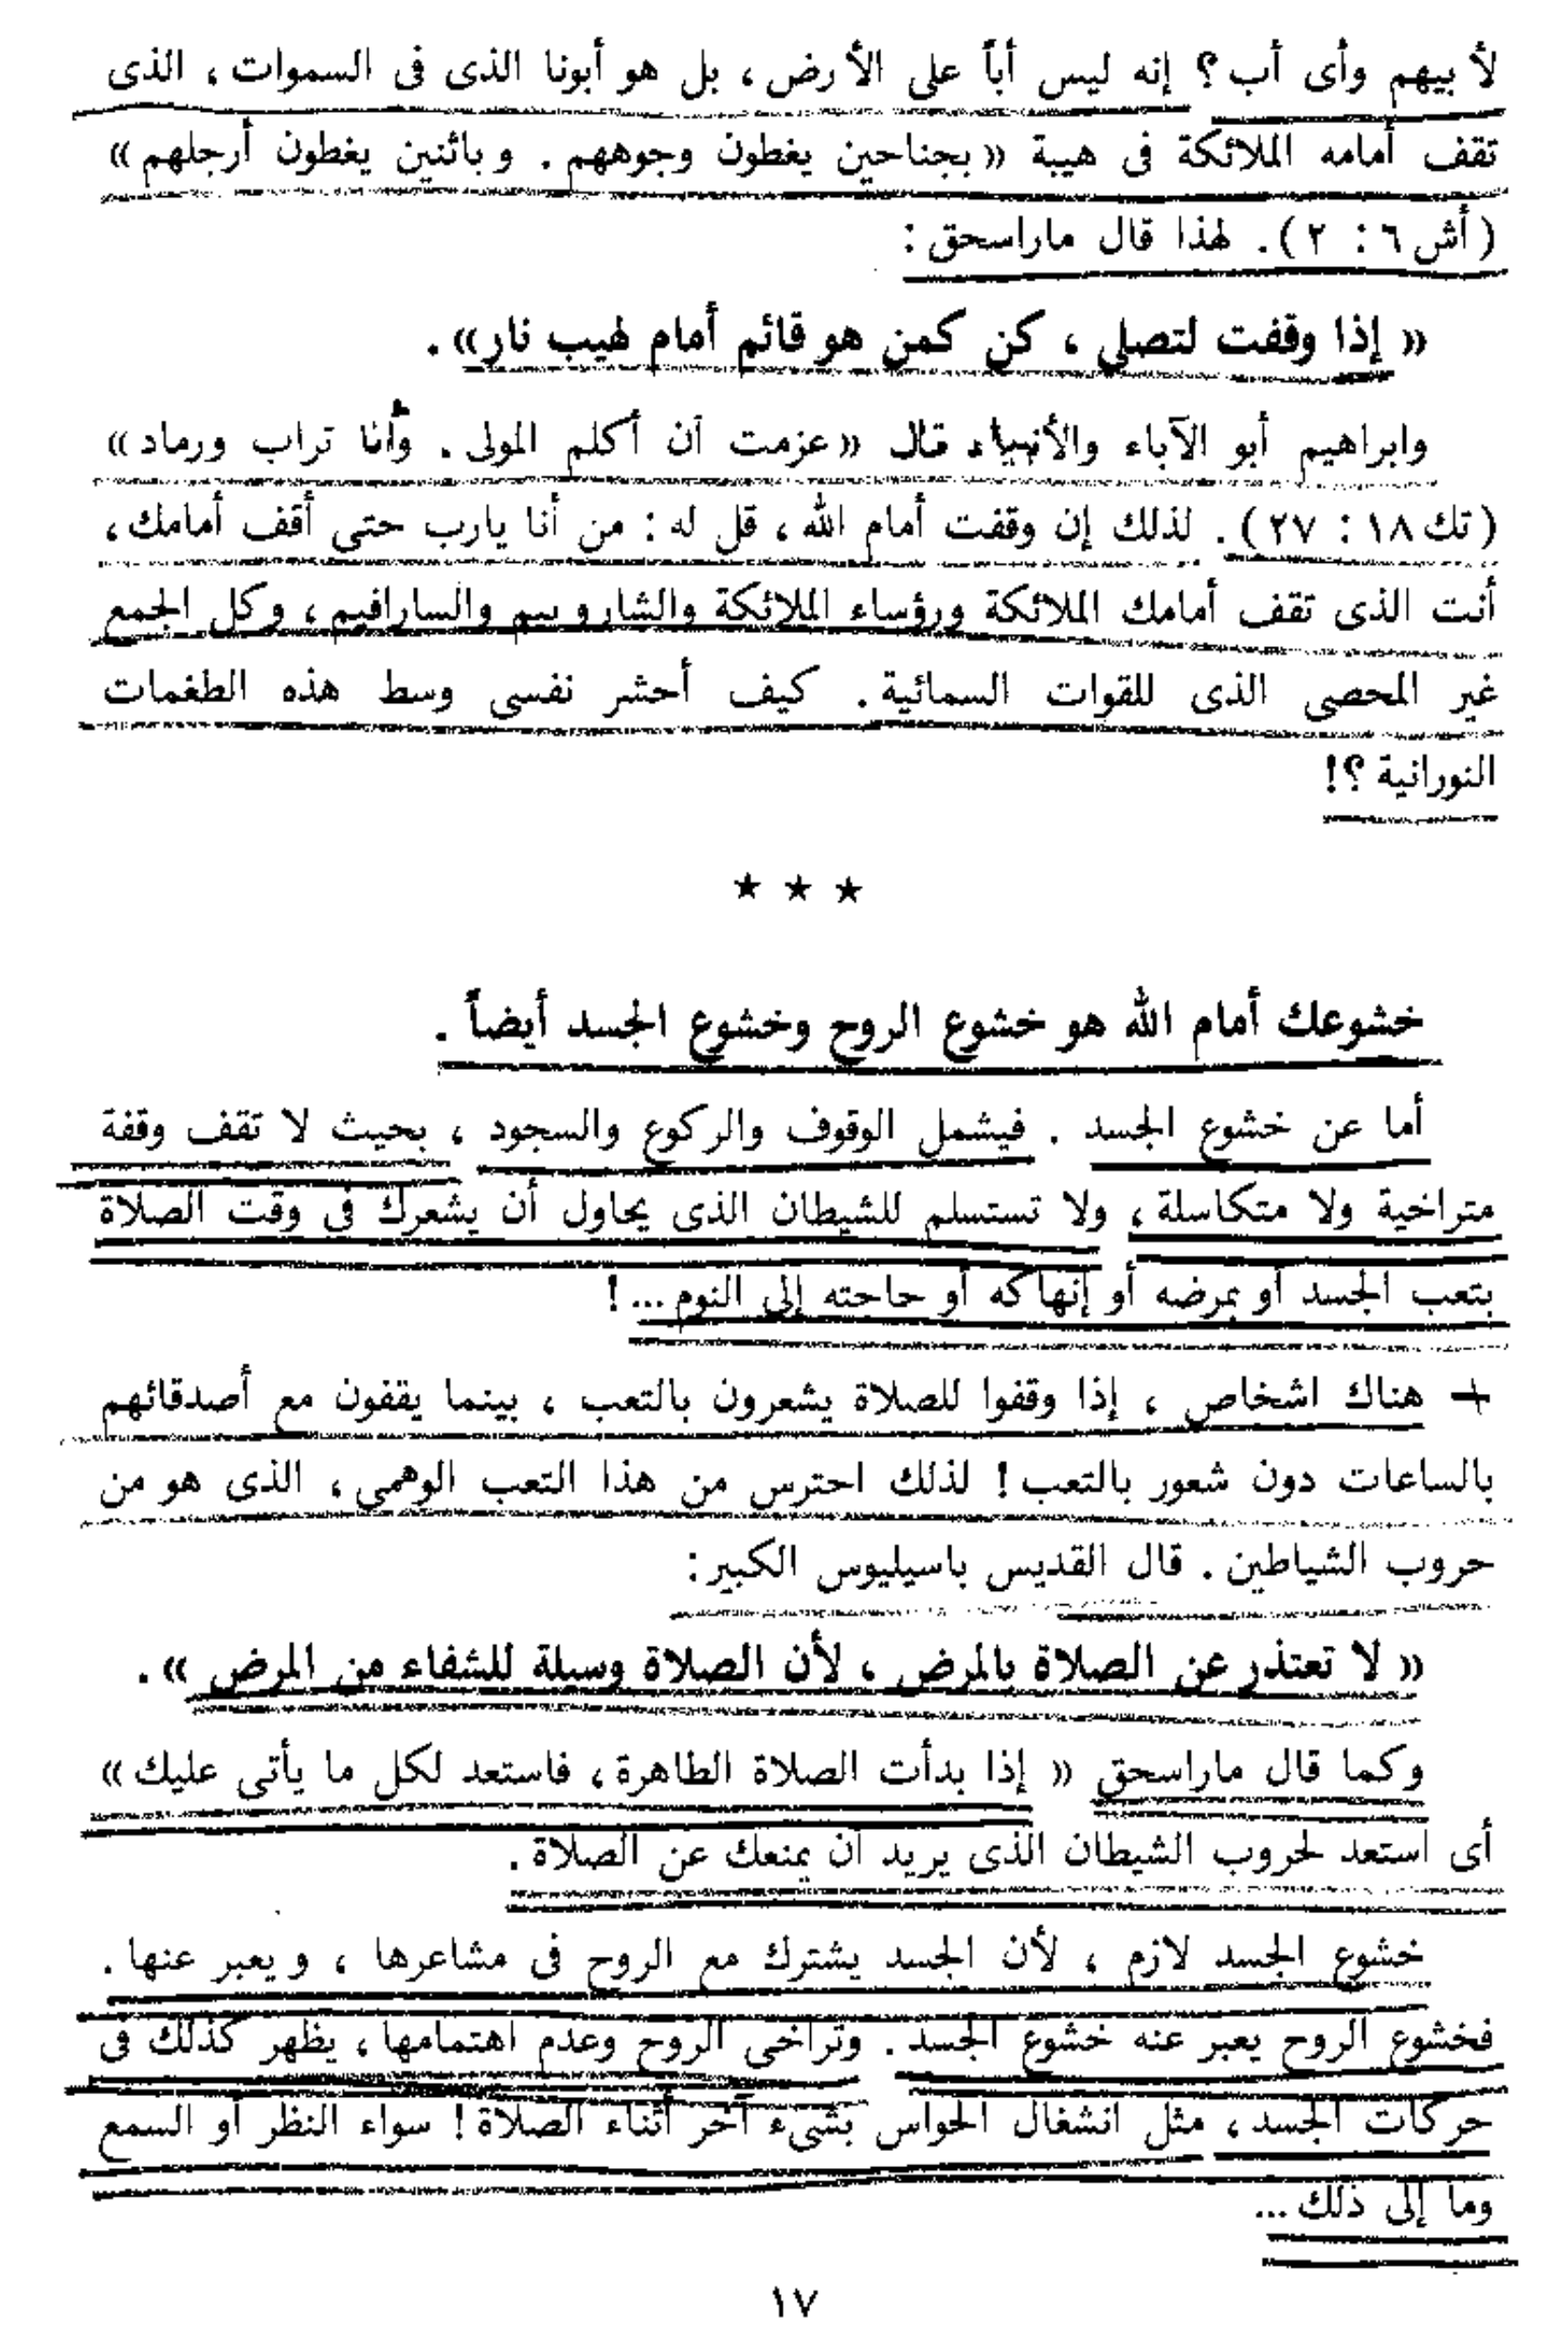 لأبيهم وأى أب؟ إنه ليس أباً على الأرض، بل هو أبونا الذى فى السموات، الذى
تقف أمامه الملائكة فى هيبة «بجناحين يغطون وجوههم. وباثنين يغطون أرجلهم»
(أش ٦: ٢). لهذا قال ماراسحق:
« إذا وقفت لتصلى ، كن كمن هو قائم أمام لهيب نار» .
وابراهيم أبو الآباء والأنبياء قال «عزمت أن أكلم المولى. وأنا تراب ورماد»
(تك ١٨: ٢٧). لذلك إن وقفت أمام الله، قل له: من أنا يارب حتى أقف أمامك،
أنت الذى تقف أمامك الملائكة ورؤساء الملائكة والشاروبيم والسارافيم، وكل الجمع
غير المحصى الذى للقوات السمائية. كيف أحشر نفسى وسط هذه الطغمات
النورانية؟!
★ ★ ★
خشوعك أمام الله هو خشوع الروح وخشوع الجسد أيضاً .
أما عن خشوع الجسد . فيشمل الوقوف والركوع والسجود ، بحيث لا تقف وقفة
متراخية ولا متكاسلة، ولا تستسلم للشيطان الذى يحاول أن يشعرك فى وقت الصلاة
بتعب الجسد أو بمرضه أو إنهاكه أو حاحته إلى النوم...!
+ هناك اشخاص ، إذا وقفوا للصلاة يشعرون بالتعب ، بينما يقفون مع أصدقائهم
بالساعات دون شعور بالتعب! لذلك احترس من هذا التعب الوهمى، الذى هو من
حروب الشياطين. قال القديس باسيليوس الكبير:
« لا تعتذر عن الصلاة بالمرض ، لأن الصلاة وسيلة للشفاء من المرض » .
وكما قال ماراسحق « إذا بدأت الصلاة الطاهرة، فاستعد لكل ما يأتى عليك»
أى استعد لحروب الشيطان الذى يريد أن يمنعك عن الصلاة.
خشوع الجسد لازم ، لأن الجسد يشترك مع الروح فى مشاعرها ، ويعبر عنها.
فخشوع الروح يعبر عنه خشوع الجسد. وتراخى الروح وعدم اهتمامها، يظهر كذلك فى
حركات الجسد، مثل انشغال الحواس بشىء آخر أثناء الصلاة! سواء النظر أو السمع
وما إلى ذلك...
١٧